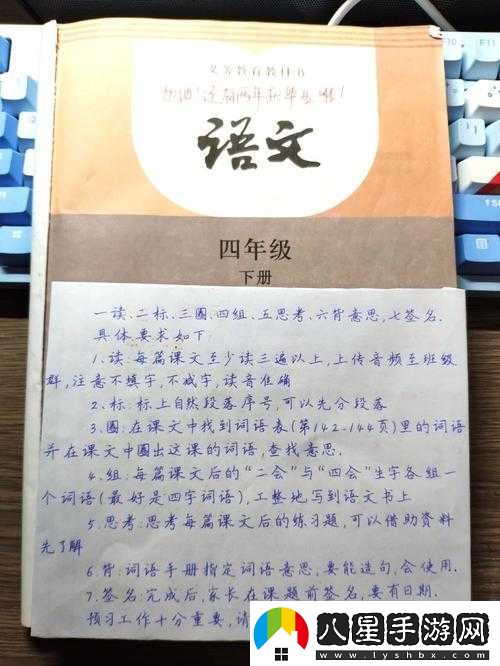 义务教育教科书
加油!还有两年就毕业啦!
语文
四年级
下册
一读、二标、三圈、四组、五思考、六背意思,七签名.
具体要求如下
1.读:每篇课文至少读三遍以上,上传音频至班级
群,注意不填字,不减字,读音准确
2.标:标上自然段落序号,可以先分段落
3.圈:在课文中找到词语表(第142-144页)里的词语
并在课文中圈出这课的词语,查找意思.
4.组:每篇课文后的“二会”与“四会”生字各组一
个词语(最好是四字词语),工整地写到语文书上
5.思考:思考每篇课文后的练习题,可以借助资料
先了解
6.背:词语手册指定词语意思,要能造句,会使用.
7.签名:完成后,家长在课题前签名,要有日期.
预习工作十分重要,请
八星手游网
www.lyshbx.com